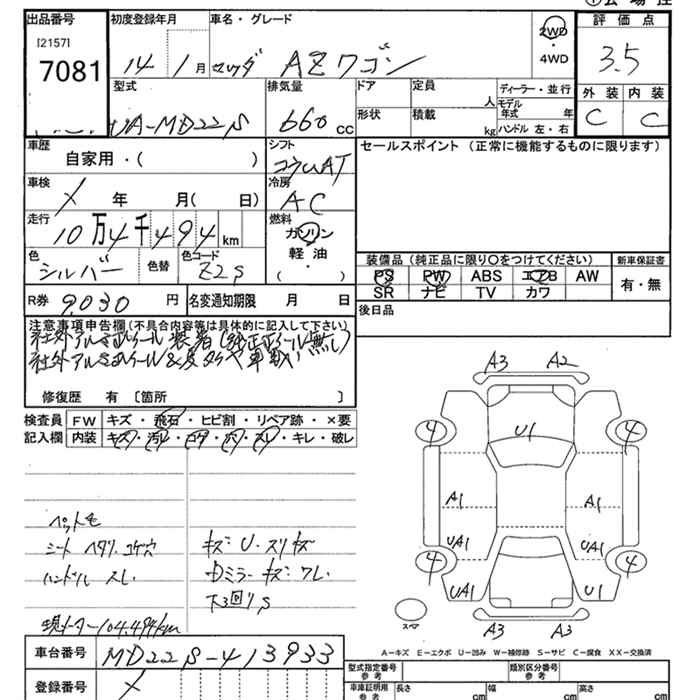 出品番号 初度登録年月 車名・グレード 2WD 評価点
[2157]
7081 14 1月 AZワゴン ・4WD 3.5
型式 排気量 ドア 定員 人 ディーラー・並行 外装 内装
UA-MD22S 660 cc 形状 積載 kg モデル年式 年 C C
ハンドル 左・右
車歴 シフト セールスポイント (正常に機能するものに限ります)
自家用・( ) コラムAT
車検 冷房
X 年 月( 日) AC
走行 燃料
10万4千494km ガソリン
軽油
色 色替 色コード ・
シルバー Z2S ( )
装備品 (純正品に限り○をつけてください) 新車保証書
PS PW ABS エアB AW 有・無
SR ナビ TV カワ
R券 9,030 円 名変通知期限 月 日 後日品
注意事項申告欄(不具合内容等は具体的に記入して下さい)
社外アルミホイール装着(純正ホイール無し)
社外アルミホイール&
修復歴 有 〔箇所 〕
検査員 FW キズ・飛石・ヒビ割・リペア跡・×要
記入欄 内装 キズ・汚レ・コゲ・穴・スレ・キレ・破レ
A3 A2
4 4
U1
A1 A1
UA1 UA1
4 4
UA1 U1
スペア
A3 A3
ペット毛
シート ヘタリ.コゲ穴 キズ・U・スリキズ
ハンドル スレ Dミラーキズ・ワレ
下回りS
現メーター104,494km
A-キズ E-エクボ U-凹み W-補修跡 S-サビ C-腐食 XX-交換済
車台番号 MD22S-413933
型式指定番号 参考 類別区分番号 参考
登録番号 X 車庫証明用 参考 長さ cm 幅 cm 高さ cm